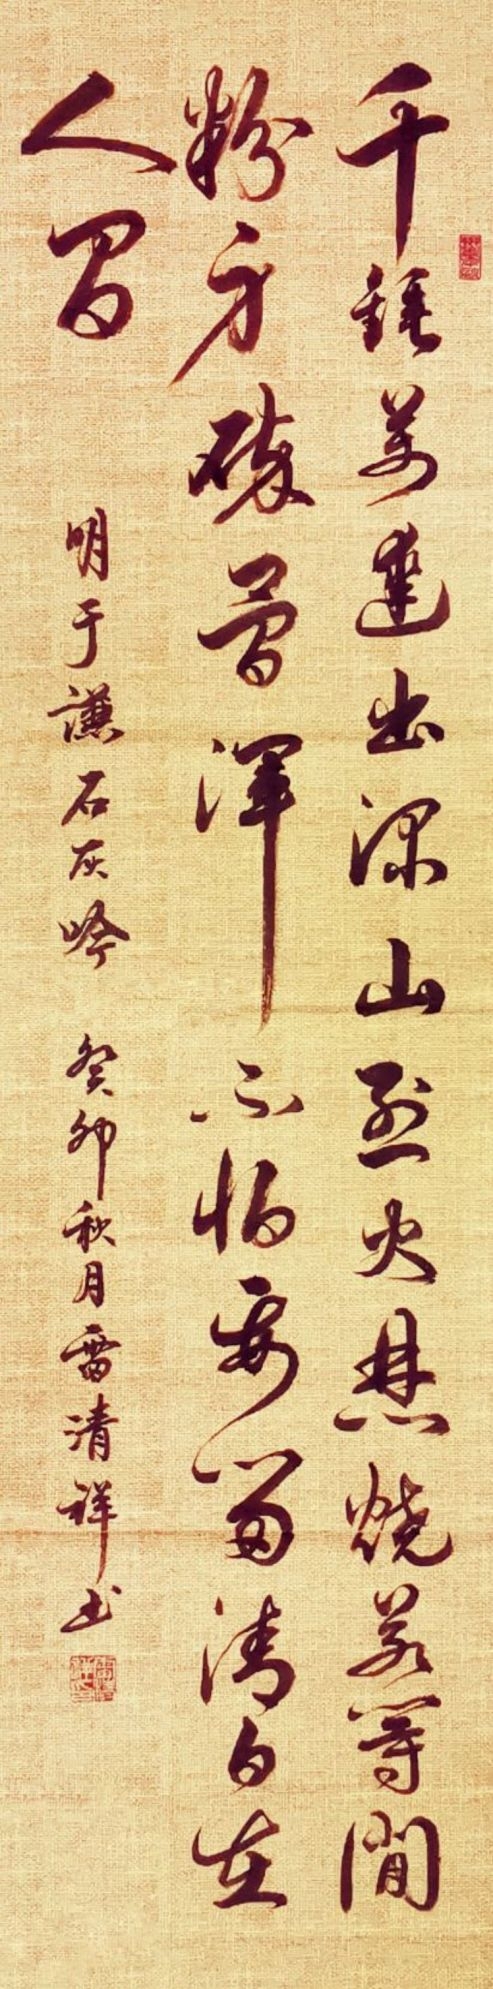 千錘萬鑿出深山烈火焚燒若等閒
粉身碎骨渾不怕要留清白在
人間
明于謙石灰吟 癸卯秋月雷清祥书